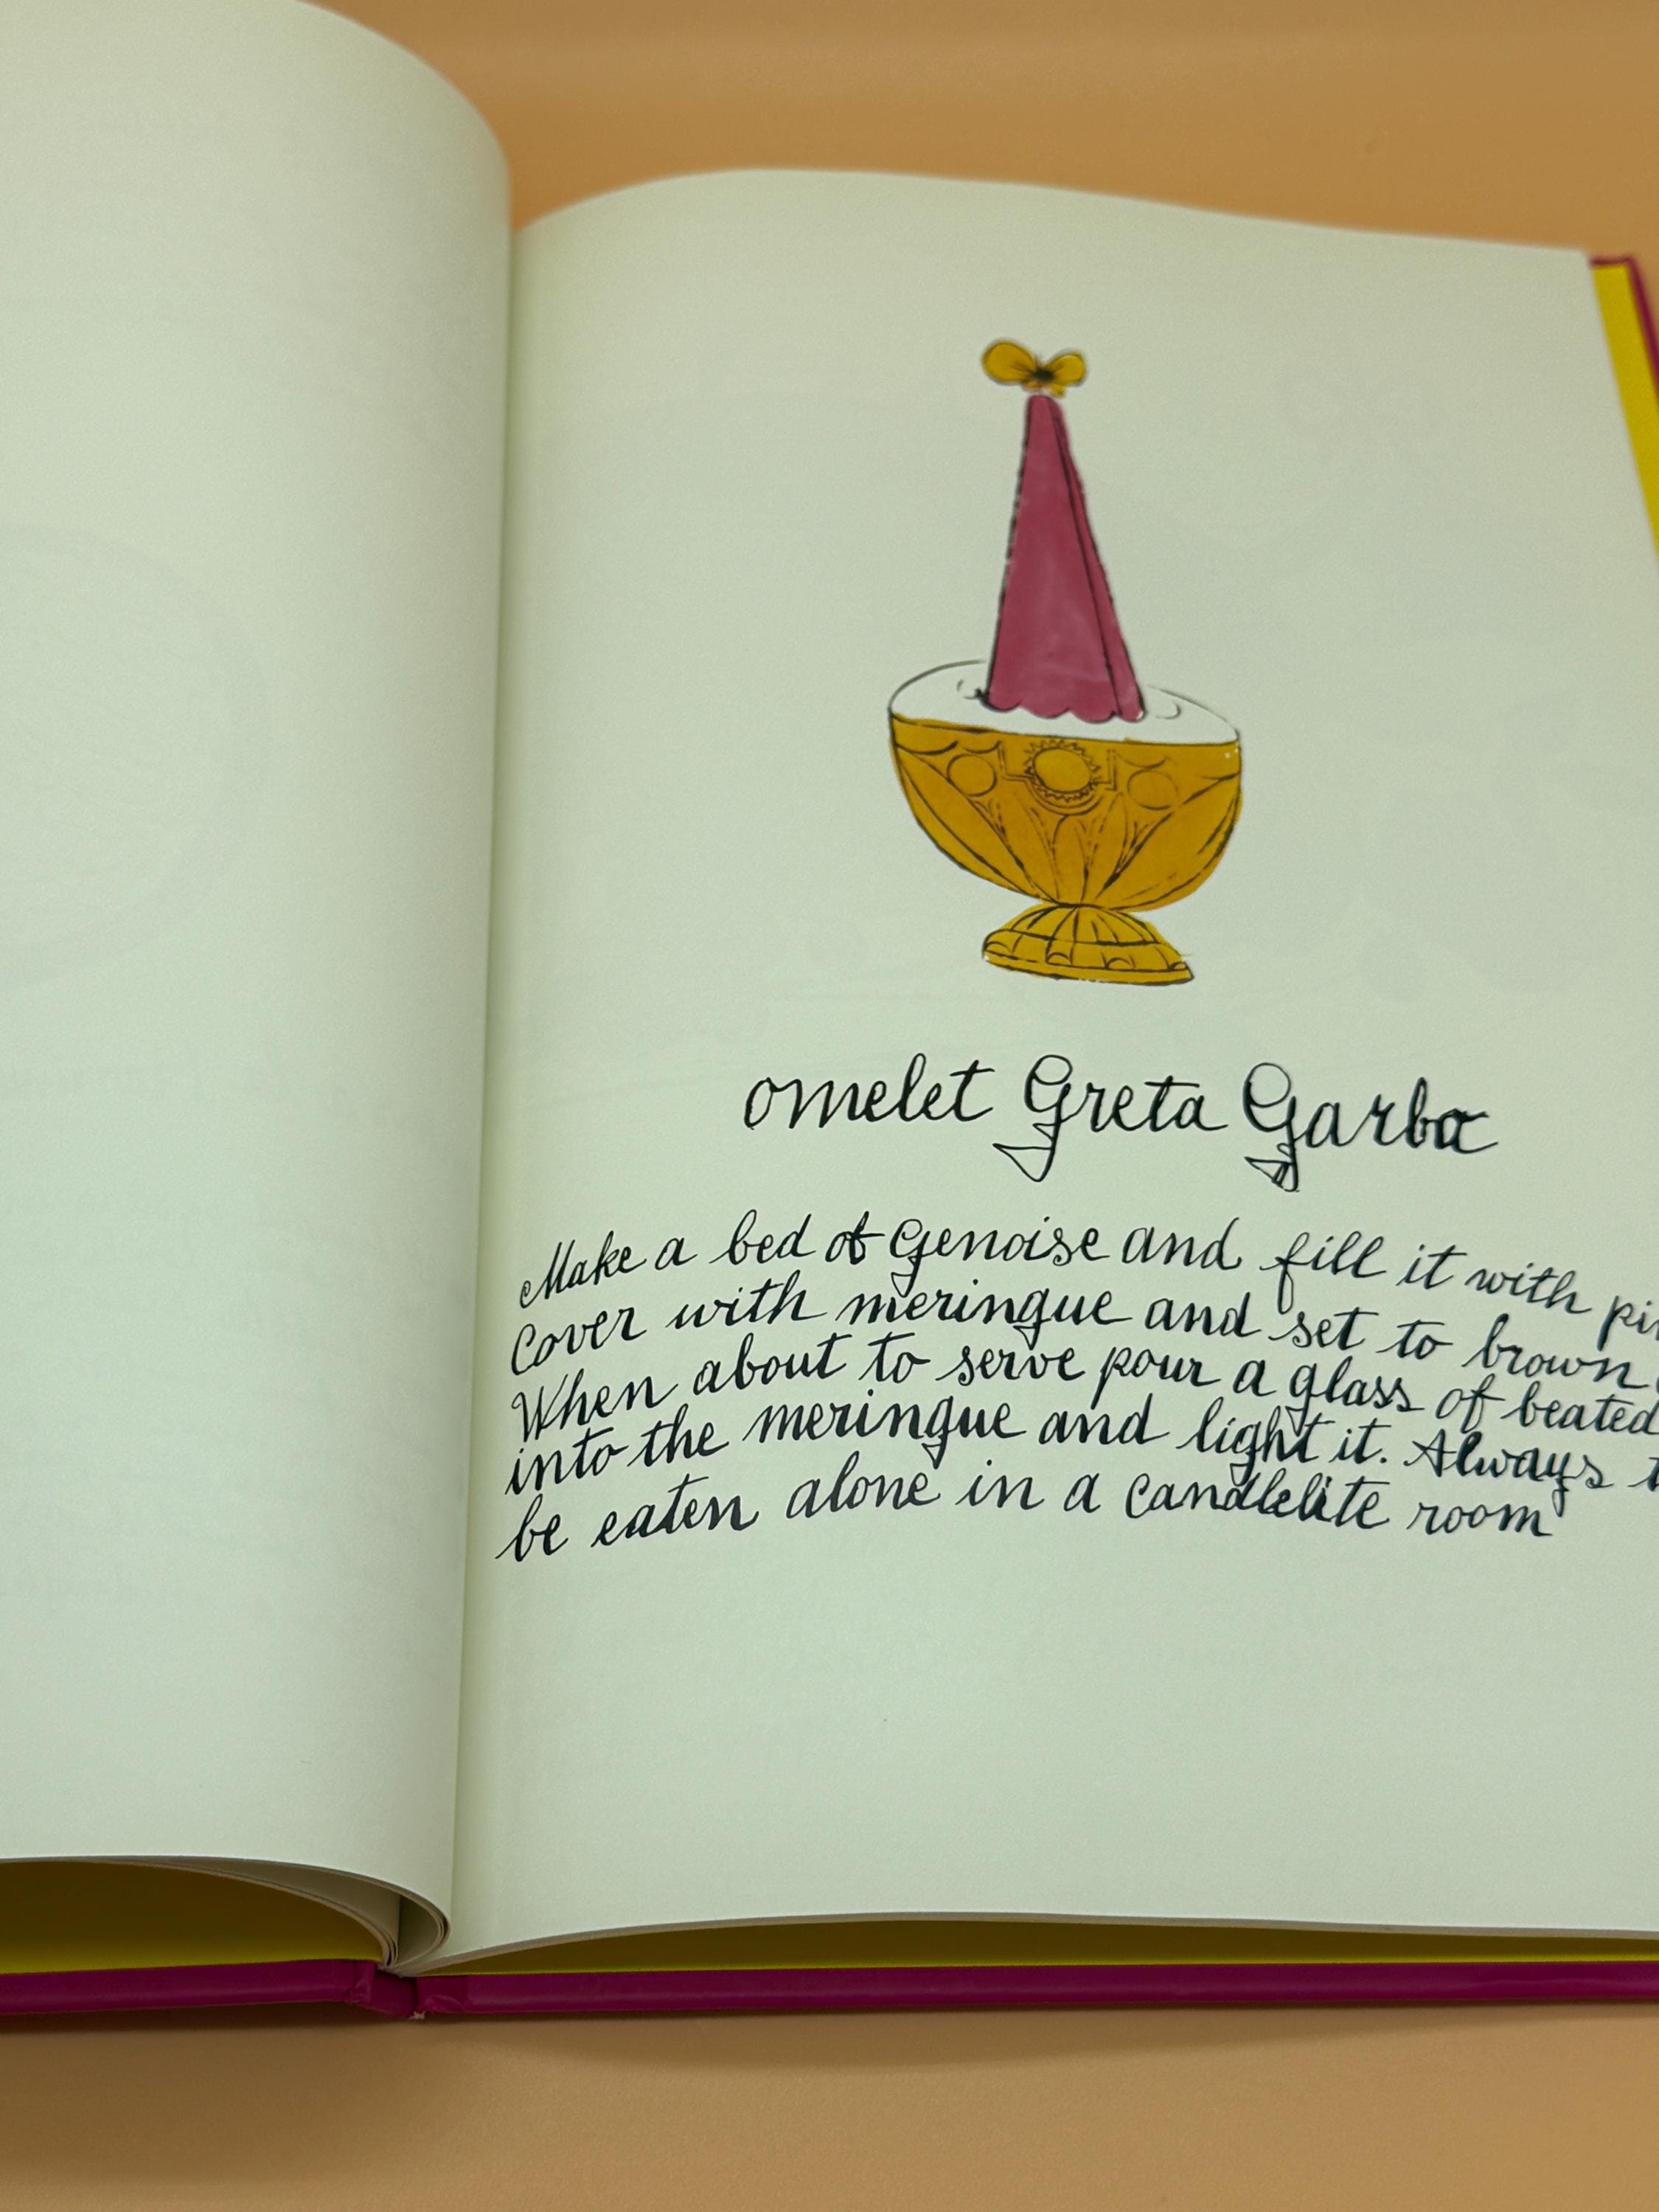 omelet Greta Garbo
Make a bed of Genoise and fill it with
Cover with meringue and set to brown
When about to serve pour a glass of beated
into the meringue and light it. Always
be eaten alone in a candlelite room